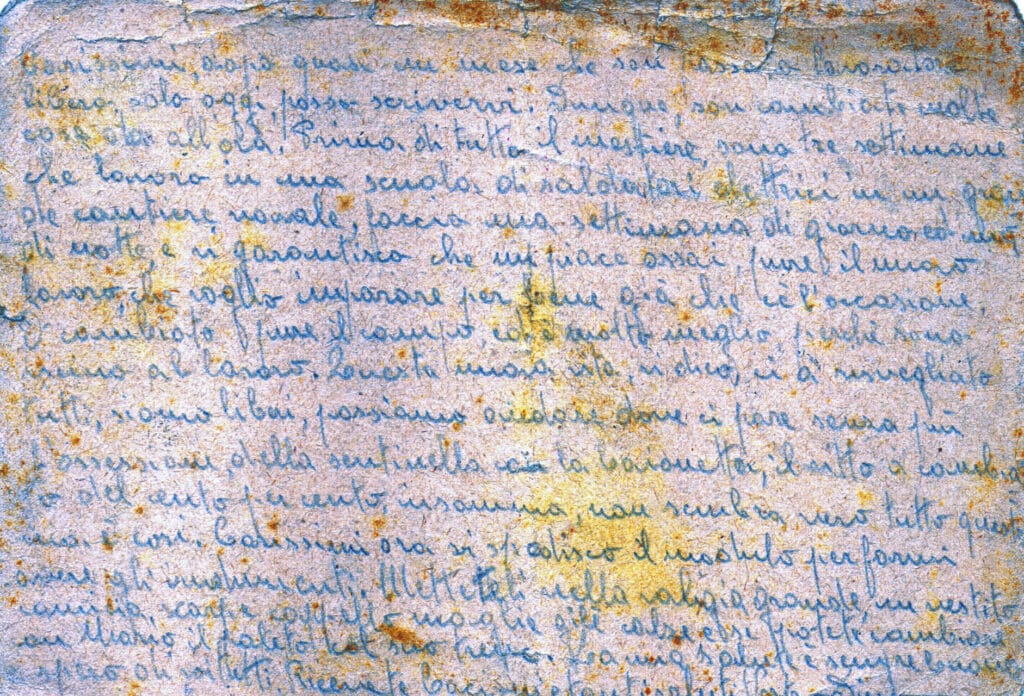 Carissimi, dopo quasi un mese che son passato lavoratore
libero, solo oggi posso scrivervi. Dunque, son cambiate molte
cose da allora. Prima di tutto il mestiere, sono tre settimane
che lavoro in una scuola di saldatori elettrici in un gran
de cantiere navale, faccio una settimana di giorno ed una
di notte, e vi garantisco che mi piace assai, pure il nuovo
lavoro, che voglio imparare per bene già che c'è l'occasione,
È cambiato pure il campo, ed è molto meglio perché sono
vicino al lavoro. Questa nuova vita, vi dico, ci à risvegliato
tutti, siamo liberi, possiamo andare dove ci pare senza più
l'ossessione della sentinella con la baionetta, il vitto à cambia
to del cento per cento, insomma, non sembra vero tutto questo
ma è così. Carissimi ora vi spedisco il modulo per farmi
avere gli indumenti. Mettetemi nella valigia grande, un vestito
camicia scarpe cappello maglie e calze e se potete cambiare
con Mario il paletò col suo La mia salute è sempre buona
spero di tutti. Ricevete baci